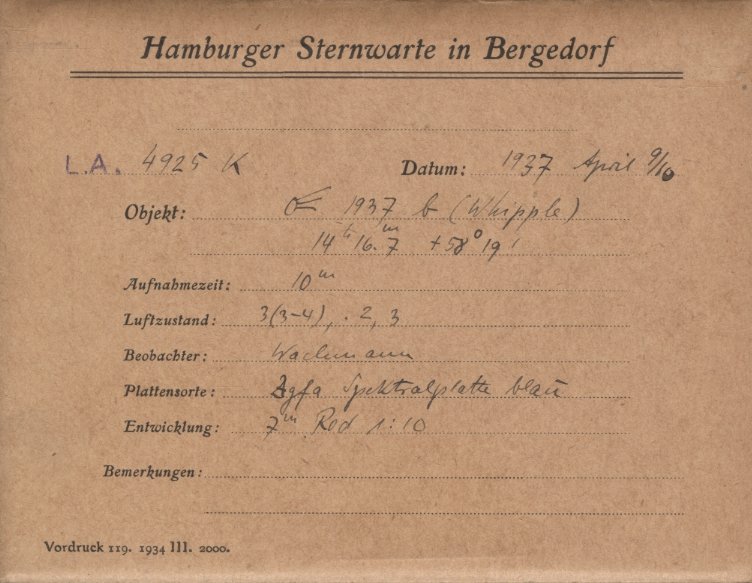 Hamburger Sternwarte in Bergedorf
L.A. 4925 K Datum: 1937 April 9/10
Objekt: ☄ 1937 b (Whipple)
14ʰ 16.ᵐ7 +58° 19'
Aufnahmezeit: 10ᵐ
Luftzustand: 3(3-4), . 2, 3
Beobachter: Wachmann
Plattensorte: Agfa Spektralplatte blau
Entwicklung: 7ᵐ Rod 1:10
Bemerkungen:
Vordruck 119. 1934 III. 2000.